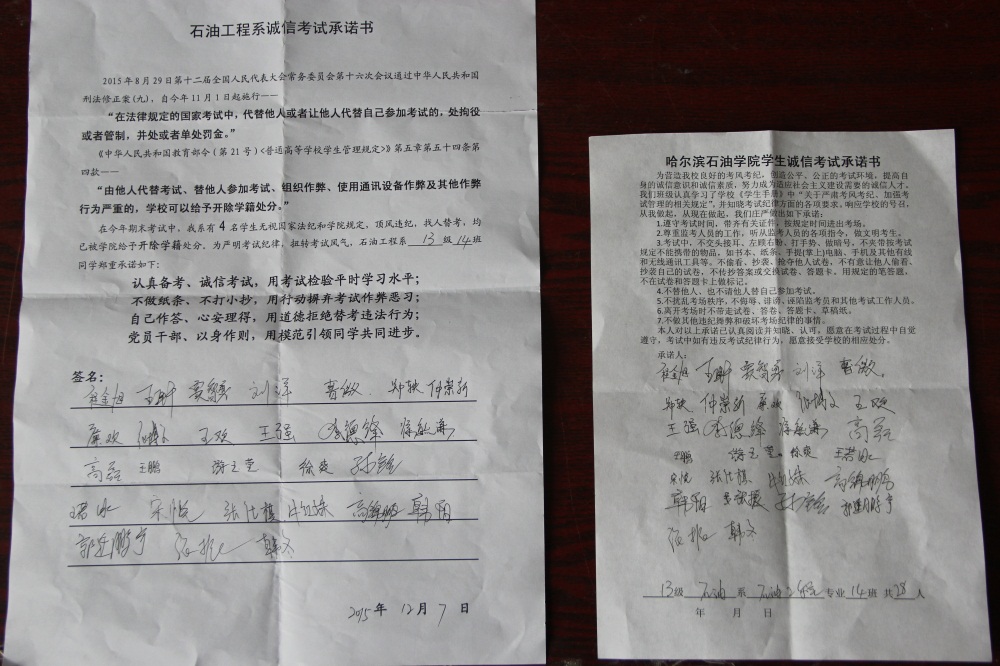 石油工程系诚信考试承诺书
2015年8月29日第十二届全国人民代表大会常务委员会第十六次会议通过中华人民共和国
刑法修正案(九)，自今年11月1日起施行——
“在法律规定的国家考试中，代替他人或者让他人代替自己参加考试的，处拘役
或者管制，并处或者单处罚金。”
《中华人民共和国教育部令（第21号）<普通高等学校学生管理规定>》第五章第五十四条第
四款——
“由他人代替考试、替他人参加考试、组织作弊、使用通讯设备作弊及其他作弊
行为严重的，学校可以给予开除学籍处分。”
在今年期末考试中，我系有4名学生无视国家法纪和学院规定，顶风违纪，找人替考，均
已被学院给予开除学籍处分。为严明考试纪律，扭转考试风气，石油工程系 13 级 14 班
同学郑重承诺如下：
认真备考、诚信考试，用考试检验平时学习水平；
不做纸条、不打小抄，用行动摒弃考试作弊恶习；
自己作答、心安理得，用道德拒绝替考违法行为；
党员干部、以身作则，用模范引领同学共同进步。
签名：
刘洋 曹傲 郑轶 仲崇新
王欢 王强 李德锋
高磊 王鹏 徐爽 孙铨
韩阳
韩文
2015年 12月 7日
哈尔滨石油学院学生诚信考试承诺书
为营造我校良好的考风考纪，创造公平、公正的考试环境，提高自
身的诚信意识和诚信素质，努力成为适应社会主义建设需要的诚信人才，
我们班级认真学习了学校《学生手册》中“关于严肃考风考纪、加强考
试管理的相关规定”，并知晓考试纪律方面的各项要求，响应学校的号召，
从我做起，从现在做起，我们庄严做出如下承诺：
1.遵守考试时间，带齐有关证件，按规定时间进出考场。
2.尊重监考人员的工作，听从监考人员的各项指令，做文明考生。
3.考试中，不交头接耳、左顾右盼、打手势、做暗号，不夹带按考试
规定不能携带的物品，如书本、纸条、手提(掌上)电脑、手机及其他有线
和无线通讯工具等。不偷看、抄袭、抢夺他人试卷，不有意让他人偷看、
抄袭自己的试卷，不传抄答案或交换试卷、答题卡。用规定的笔答题、
不在试卷和答题卡上做标记。
4.不替他人、也不请他人替自己参加考试。
5.不扰乱考场秩序，不侮辱、诽谤、诬陷监考员和其他考试工作人员。
6.离开考场时不带走试卷、答卷、答题卡、草稿纸。
7.不做其他违纪舞弊和破坏考场纪律的事情。
本人对以上承诺已认真阅读并知晓、认可，愿意在考试过程中自觉
遵守，考试中如有违反考试纪律行为，愿意接受学校的相应处分。
承诺人：
刘洋 曹傲
郑轶 仲崇新 王欢
王强 李德锋 高磊
王鹏 徐爽
韩阳 孙铨
韩文
13级 石油 系 石油工程 专业 14 班 共 28 人
年 月 日